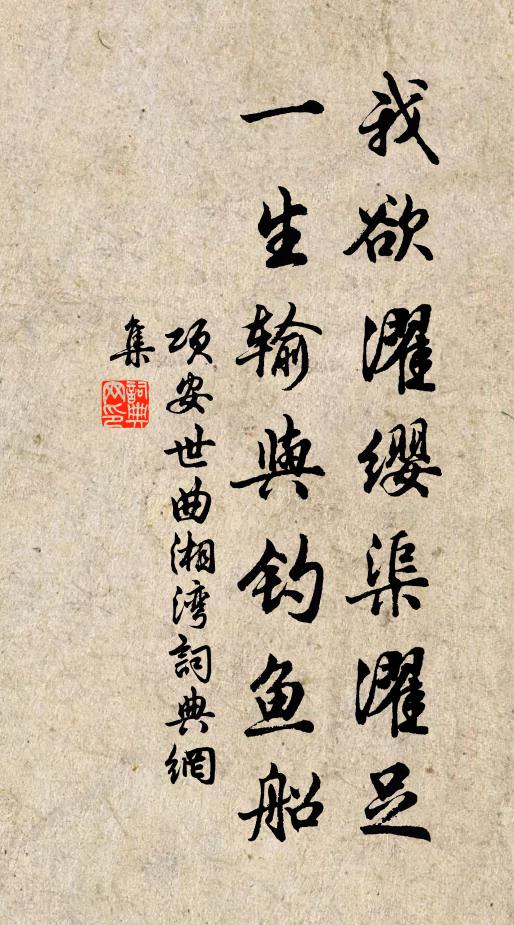 我欲濯缨渠濯足
一生输与钓鱼船
项安世曲湘湾詞典網
集
詞典
网印